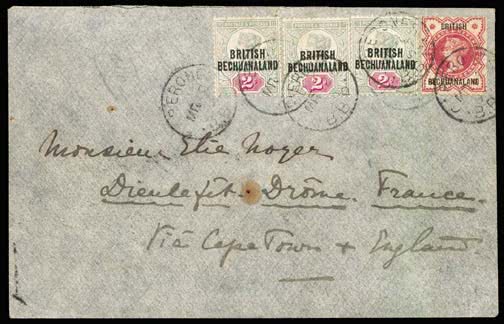 BRITISH BECHUANALAND
2d
BRITISH BECHUANALAND
2d
BRITISH BECHUANALAND
2d
BRITISH
BECHUANALAND
Monsieur Elie Noyer
Dieulefit. Drôme. France.
Via Cape Town & England.